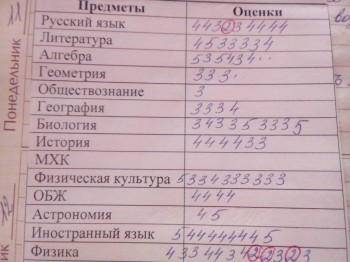 Предметы Оценки
Русский язык 443234444
Литература 4533334
Алгебра 535434
Геометрия 333
Обществознание 3
География 3334
Биология 343353335
История 444433
МХК
Физическая культура 5334333333
ОБЖ 4444
Астрономия 45
Иностранный язык 544444445
Физика 433443422323
Понедельник
ик